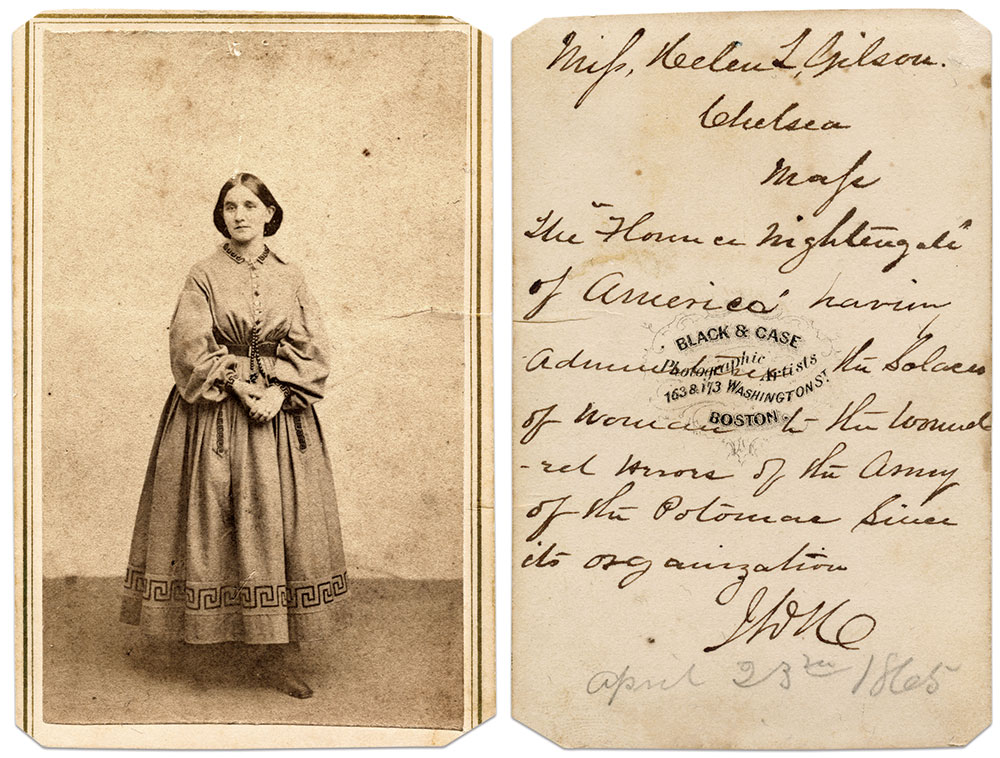 Miss, Helen L, Gilson.
Chelsea
Mass
The "Florence Nightengale"
of America having
BLACK & CASE
Photographic Artists
163 & 173 WASHINGTON ST.
BOSTON
the Solaces
of Woman to the Wound
-ed Heroes of the Army
of the Potomac Since
its organization
april 23rd 1865